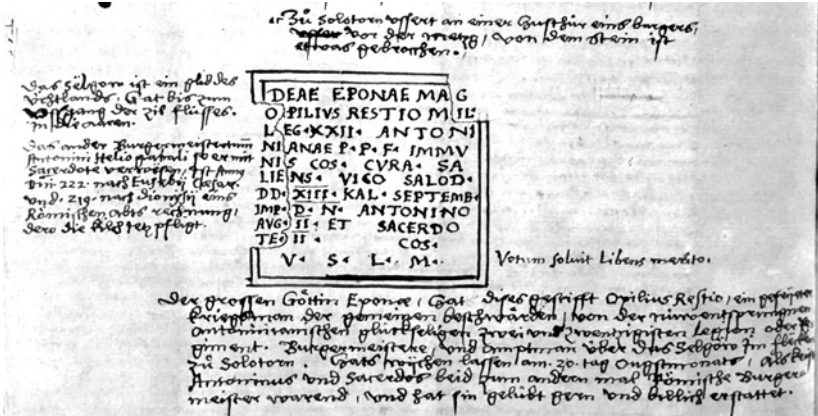 Zů Solotorn vssert an einer Husthür eins burgers,
vor der metzg, von dem stein ist
etwas gebrochen.
Das Sëlgöw ist ein glid des
Vchtlands, Hat bis zum
Vssgang der Zil flusses.
in die Aaren.
Das ander Burgermeistertum
Antonini Heliogabali so er mit
Sacerdote verwesen, ist Anno
Dni 222. nach Eusebij Cæsar.
vnd. 219. nach Dionysij eins
Römischen Abts rechnung,
dero die kilchen pfligt.
DEAE EPONAE MAG
OPILIVS RESTIO M IL.
LEG•XXII• ANTONI
NIANAE P•P•F• IMMV
NIS COS• CVRA• SA
LIENS• VICO SALOD•
DD• XIII• KAL• SEPTEMB•
IMP• D• N• ANTONINO
AVG• II• ET SACERDO
TE• II• COS•
V• S• L• M•
Votum soluit Libens merito.
Der grossen Göttin Eponæ, Hat dises gestifft Opilius Restio, ein gefryter
Kriegsman der gemeinen beschwärden, von der
Antoninianischen glückseligen zwei vnd zwentzigisten Legion oder
giment. Burgermeistere, vnd amptman über das Selgöw Im flecken
zů Solotorn. Hats wychen lassen am. 20. tag Ougstmonats, Als
Antoninus vnd Sacerdos beid zum andern mal Römische Burger
meister warend, vnd hat sin gelübt gern vnd billich erstattet.